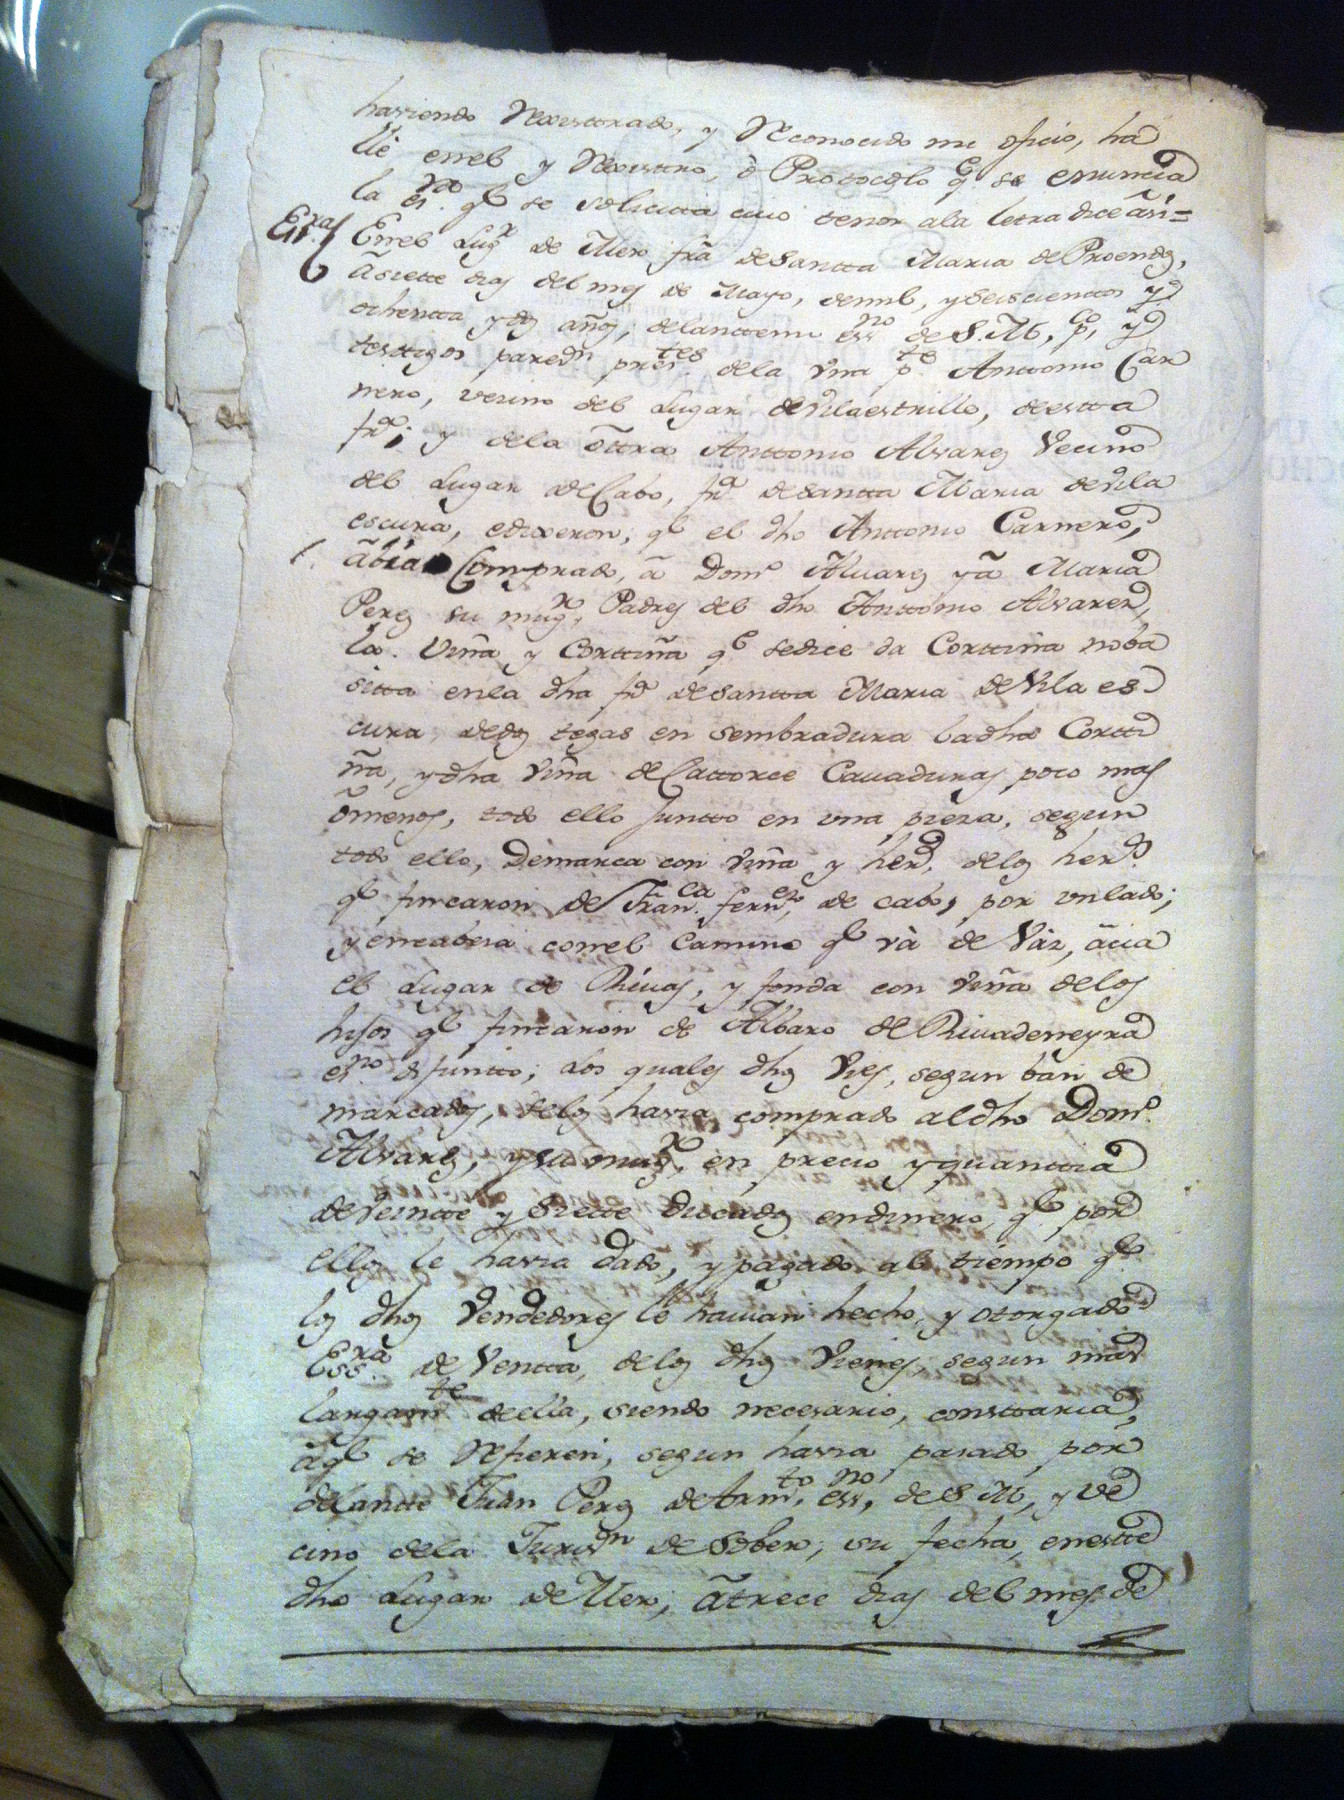 haviendo Rexistrado, y Reconocido mi oficio, ha
llé enel y Rexistro, ò Protocolo q.e se enuncia
la es.ra q.e se solicitta cuio tenor ala letra dice ãsi=
Es.ra Enel Lug.r de Mero fr.ã de Santta Maria de Proendos,
ã siette dias del mes de Mayo, demil, y seiscienttos y
ochentta y dos años; delanttemi ess.no de S.M, p.co y
testtigos pareci.n pres.tes de la Una p.te Anttonio Car
nero, vecino del Lugar de Vilaestrille, de estta
fr.ã; y dela õttra Anttonio Alvares Vecino
del Lugar de Cabo, fr.ã de Santta Maria de Vila
escura, edixeron; q.e el dho Anttonio Carnero,
ãbia Comprado, ã Dom.o Alvares yã Maria
Perez su mug.r, Padres del dho Anttonio Alvarez,
la Viña y Corttiña q.e sedice da Corttiña noba
sitta enla dha fr.ã de Santta Maria de Vila es
cura, de dos tegas en sembradura la dha Cortti
ña, y dha Viña de Cattorce Cavaduras poco mas
õmenos, todo ello juntto en una pieza, segun
todo ello, Demarca con Viña y her.d delos her.os
q.e fincaron de Fran.ca fern.ez de Cabo, por unlado;
y encabeza conel Camino q.e và de Vàz, ãcia
el Lugar de Rivas, y fonda con Viña delos
hijos q.e fincaron de Albaro de Rivadeneyra
es.no difuntto; Los quales dhos Vies, segun bàn de
marcados, selos havia comprado al dho Dom.o
Alvares, y su mug.r, en precio y quanttia
de Veintte y Siette Ducados endinero, q.e por
ellos le havia dado, y pagado al tiempo q.e
los dhos Vendedores le havian hecho, y otorgado
Ess.ra de Ventta, delos dhos Vienes, segun mas
largam.te della, siendo necesario, consttaria,
ãq.e se Refieren, segun havia pasado por
delantte Juan Perez de Arm.to, ess.no, de S.M, y ve
cino dela Jurisd.n de Sober; su fecha, enestte
dho Lugar de Mero, ã trece dias del mes de